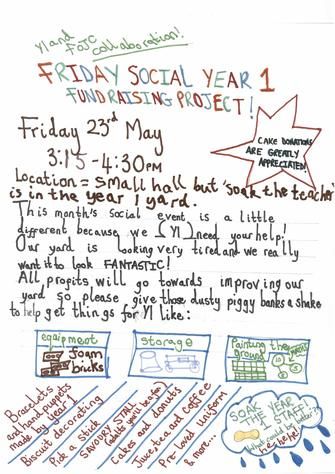 Y1 and FOJC collaboration!
FRIDAY SOCIAL YEAR 1
FUNDRAISING PROJECT!
Friday 23rd May
3:15 - 4:30PM
CAKE DONATIONS
ARE GREATLY
APPRECIATED!
Location = Small hall but 'soak the teacher'
is in the year 1 yard.
This month's social event is a little
different because we (Y1) need your help!
Our yard is looking very tired and we really
want it to look FANTASTIC!
All profits will go towards improving our
yard so please give those dusty piggy banks a shake
to help get things for Y1 like:
equipment
foam
bricks
storage
Painting the
ground
Bracelets
and hand puppets
made by year 1
Biscuit decorating
Pick a stick
SAVOURY STALL
Cakes and donuts
Juice, tea and coffee
Pre-loved uniform
& more...
SOAK THE YEAR
1 STAFF!
What could be better?
he he he!